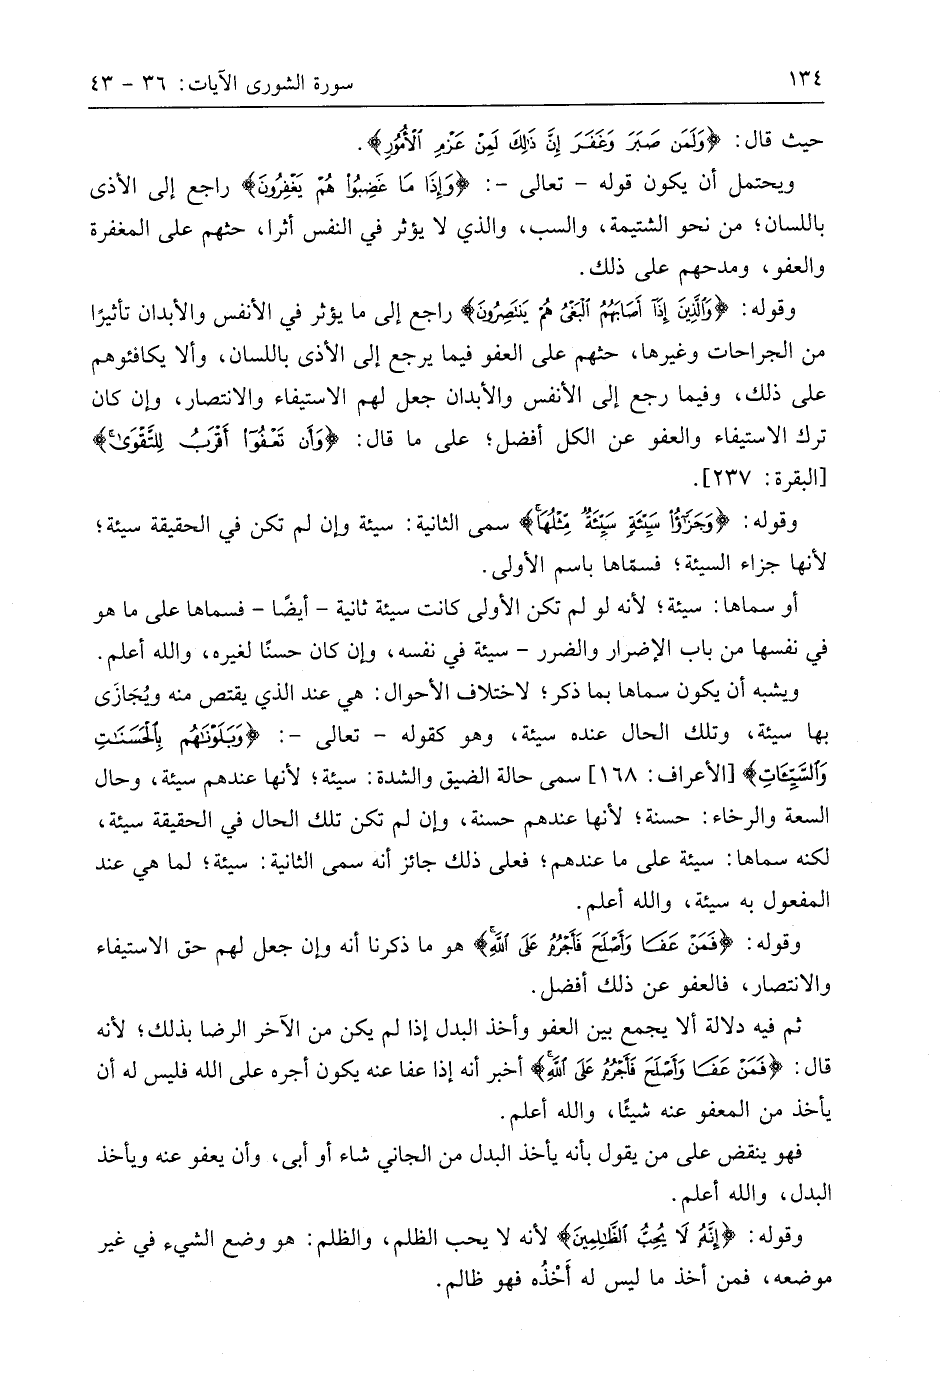 ١٣٤ سورة الشورى الآيات: ٣٦ - ٤٣
حيث قال: ﴿وَلَمَن صَبَرَ وَغَفَرَ إِنَّ ذَٰلِكَ لَمِنْ عَزْمِ ٱلْأُمُورِ﴾.
ويحتمل أن يكون قوله - تعالى -: ﴿وَإِذَا مَا غَضِبُوا۟ هُمْ يَغْفِرُونَ﴾ راجع إلى الأذى
باللسان؛ من نحو الشتيمة، والسب، والذي لا يؤثر في النفس أثرا، حثهم على المغفرة
والعفو، ومدحهم على ذلك.
وقوله: ﴿وَٱلَّذِينَ إِذَآ أَصَابَهُمُ ٱلْبَغْىُ هُمْ يَنتَصِرُونَ﴾ راجع إلى ما يؤثر في الأنفس والأبدان تأثيرًا
من الجراحات وغيرها، حثهم على العفو فيما يرجع إلى الأذى باللسان، وألا يكافئوهم
على ذلك، وفيما رجع إلى الأنفس والأبدان جعل لهم الاستيفاء والانتصار، وإن كان
ترك الاستيفاء والعفو عن الكل أفضل؛ على ما قال: ﴿وَأَن تَعْفُوٓا۟ أَقْرَبُ لِلتَّقْوَىٰ ۚ﴾
[البقرة: ٢٣٧].
وقوله: ﴿وَجَزَٰٓؤُا۟ سَيِّئَةٍ سَيِّئَةٌ مِّثْلُهَا ۖ﴾ سمى الثانية: سيئة وإن لم تكن في الحقيقة سيئة؛
لأنها جزاء السيئة؛ فسمّاها باسم الأولى.
أو سماها: سيئة؛ لأنه لو لم تكن الأولى كانت سيئة ثانية - أيضًا - فسماها على ما هو
في نفسها من باب الإضرار والضرر - سيئة في نفسه، وإن كان حسنًا لغيره، والله أعلم.
ويشبه أن يكون سماها بما ذكر؛ لاختلاف الأحوال: هي عند الذي يقتص منه ويُجَازَى
بها سيئة، وتلك الحال عنده سيئة، وهو كقوله - تعالى -: ﴿وَبَلَوْنَٰهُم بِٱلْحَسَنَٰتِ
وَٱلسَّيِّـَٔاتِ﴾ [الأعراف: ١٦٨] سمى حالة الضيق والشدة: سيئة؛ لأنها عندهم سيئة، وحال
السعة والرخاء: حسنة؛ لأنها عندهم حسنة، وإن لم تكن تلك الحال في الحقيقة سيئة،
لكنه سماها: سيئة على ما عندهم؛ فعلى ذلك جائز أنه سمى الثانية: سيئة؛ لما هي عند
المفعول به سيئة، والله أعلم.
وقوله: ﴿فَمَنْ عَفَا وَأَصْلَحَ فَأَجْرُهُۥ عَلَى ٱللَّهِ ۚ﴾ هو ما ذكرنا أنه وإن جعل لهم حق الاستيفاء
والانتصار، فالعفو عن ذلك أفضل.
ثم فيه دلالة ألا يجمع بين العفو وأخذ البدل إذا لم يكن من الآخر الرضا بذلك؛ لأنه
قال: ﴿فَمَنْ عَفَا وَأَصْلَحَ فَأَجْرُهُۥ عَلَى ٱللَّهِ ۚ﴾ أخبر أنه إذا عفا عنه يكون أجره على الله فليس له أن
يأخذ من المعفو عنه شيئًا، والله أعلم.
فهو ينقض على من يقول بأنه يأخذ البدل من الجاني شاء أو أبى، وأن يعفو عنه ويأخذ
البدل، والله أعلم.
وقوله: ﴿إِنَّهُۥ لَا يُحِبُّ ٱلظَّٰلِمِينَ﴾ لأنه لا يحب الظلم، والظلم: هو وضع الشيء في غير
موضعه، فمن أخذ ما ليس له أَخْذُه فهو ظالم.